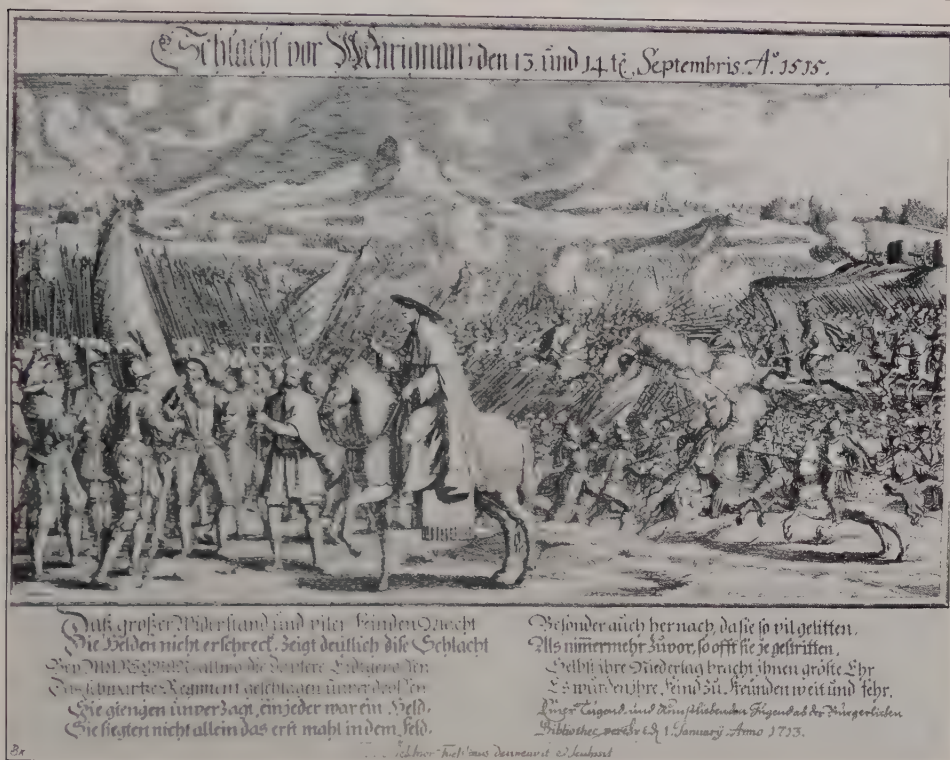 Schlacht vor Marignan; den 13. und 14.tē. Septembris. A.° 1515.
Daß großer Widerstand und viler Feinden Macht
Die Helden nicht erschreck, zeigt deütlich dise Schlacht
Bey MARIGNAN allwo die dapfere Eidgenoßen
Das schwartze Regiment geschlagen unverdroßen
Sie giengen unverzagt, ein jeder war ein Held.
Sie siegten nicht allein das erst mahl in dem Feld.
Besonder auch hernach, da sie so vil gelitten,
Als nim̄ermehr zuvor, so offt sie je gestritten,
Selbst ihre Niederlag bracht ihnen gröste Ehr
Es wurden ihre Feind zu Freunden weit und fehr.
Einer Tugend und Kunstliebenden Jugend ab der Burgerlichen
Bibliothec verehrt d. 1. January. Anno 1713.